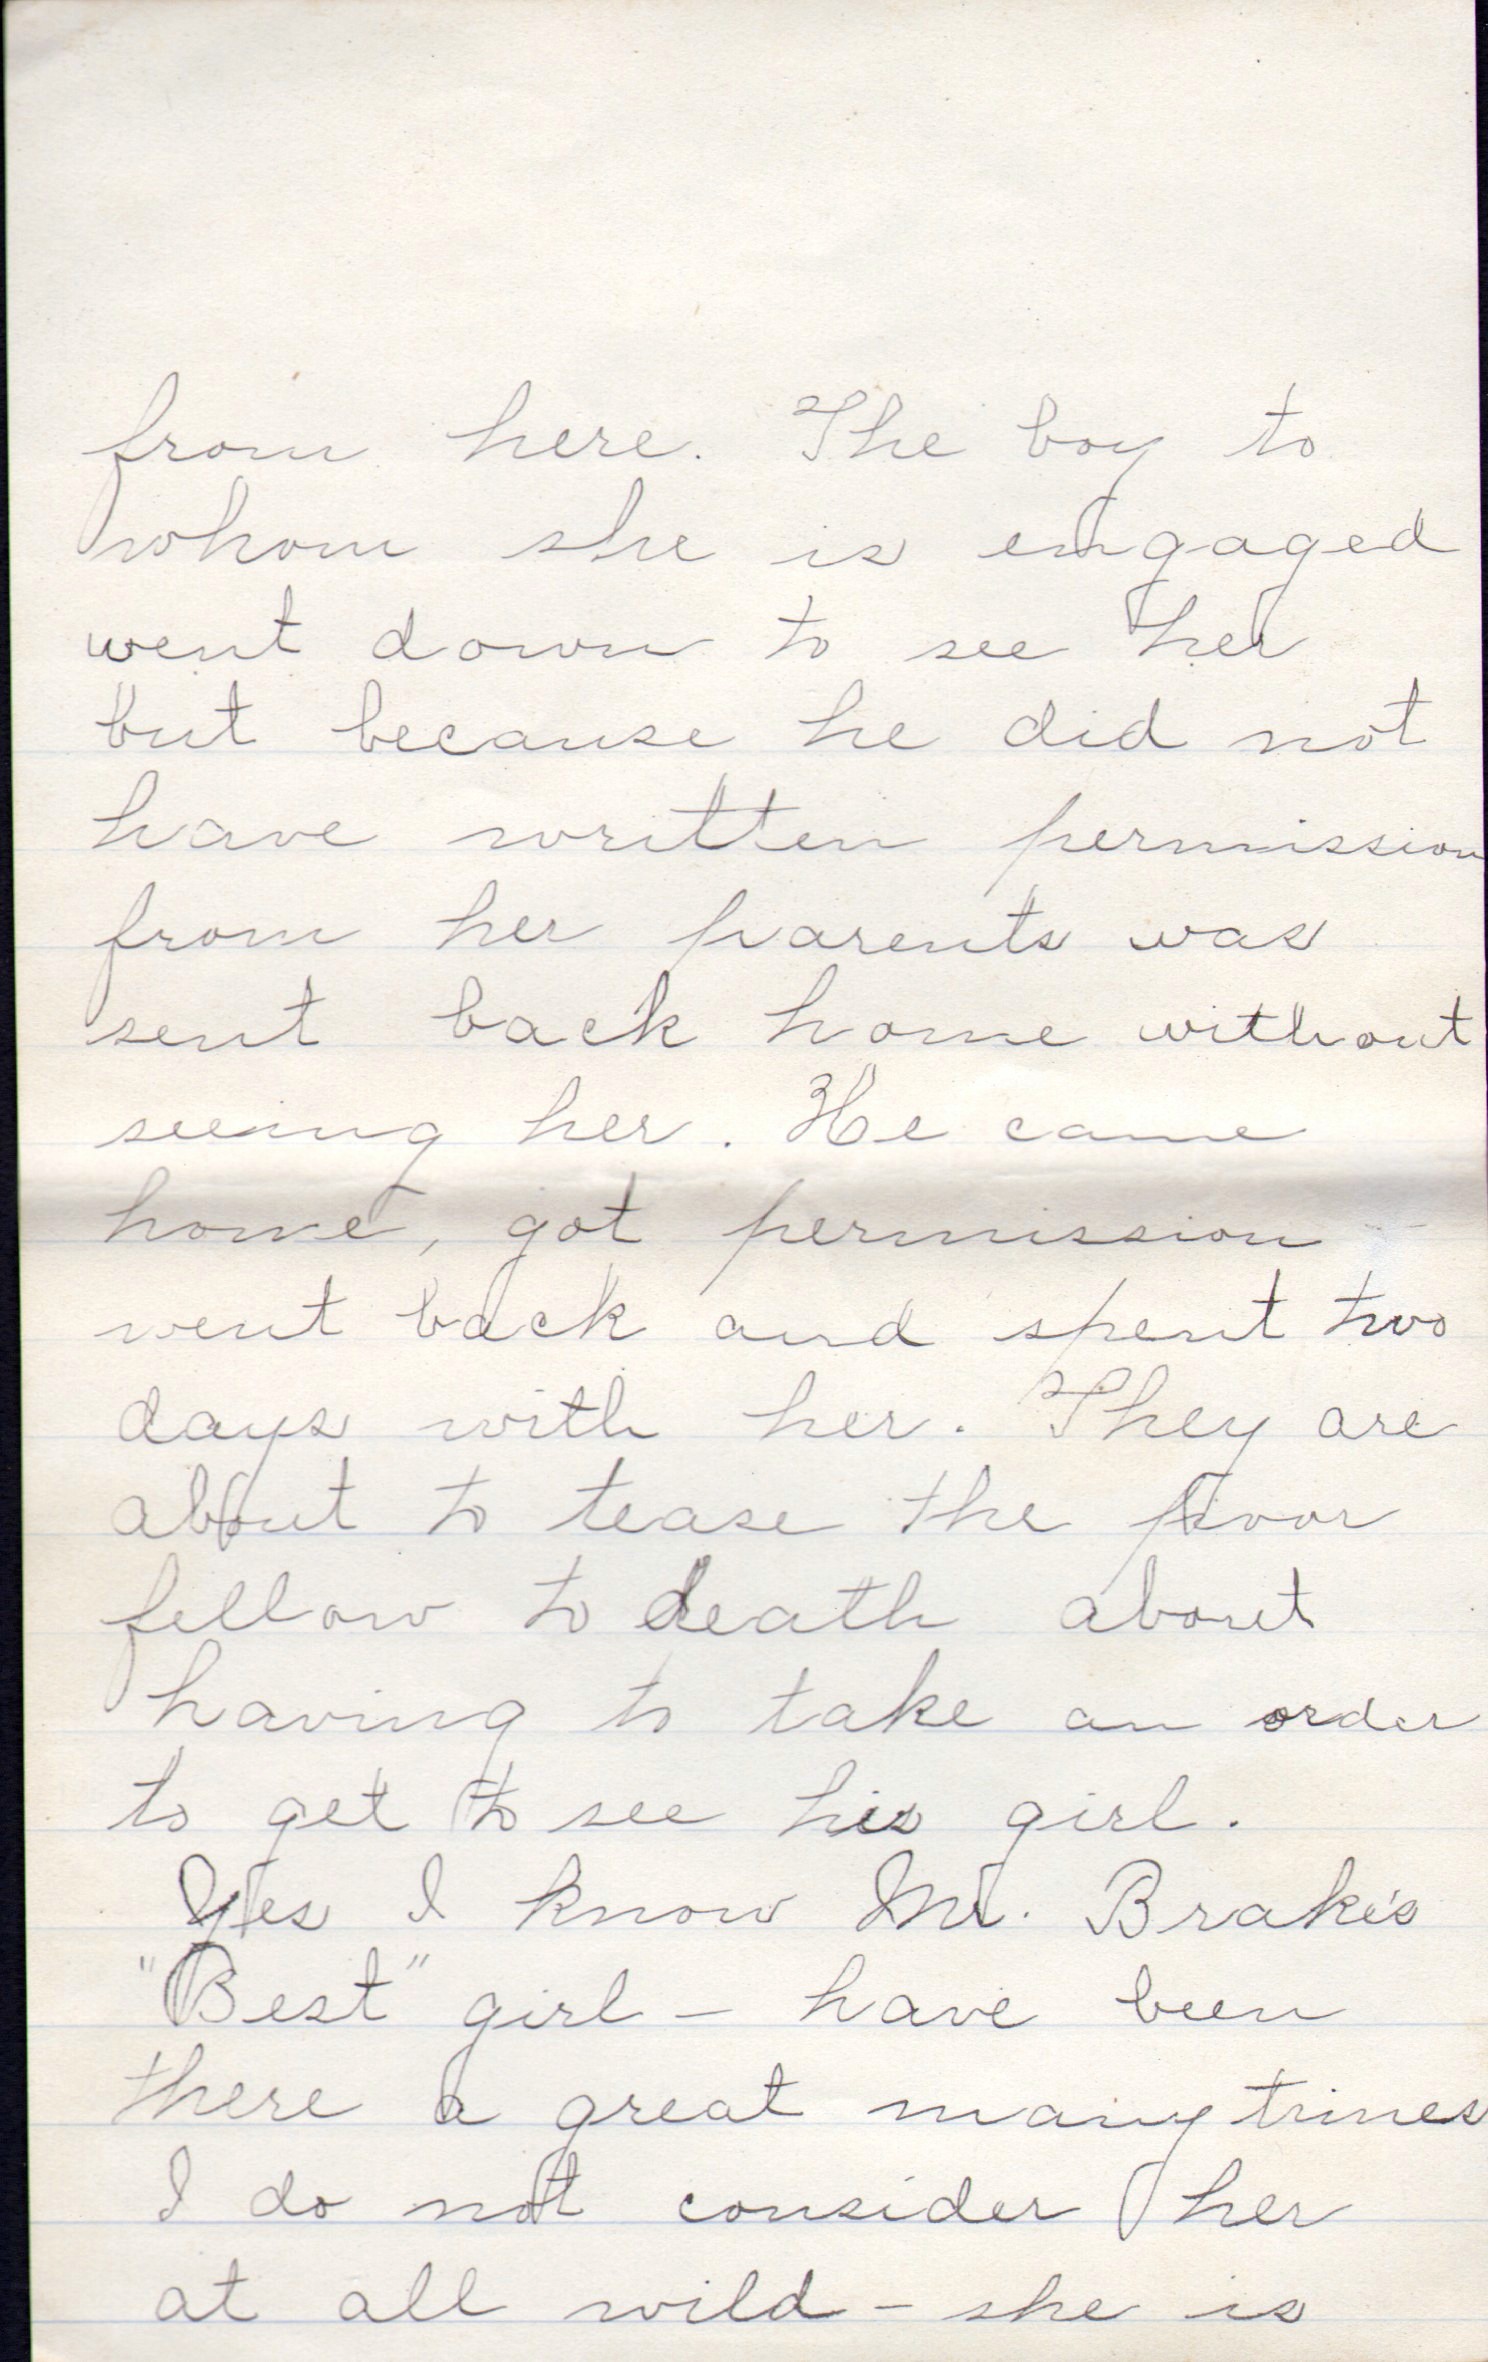 from here. The boy to
whom she is engaged
went down to see her
but because he did not
have written permission
from her parents was
sent back home without
seeing her. He came
home, got permission
went back and spent two
days with her. They are
about to tease the poor
fellow to death about
having to take an order
to get to see his girl.
Yes I know Mr. Brake's
"Best" girl - have been
there a great many times
I do not consider her
at all wild - she is